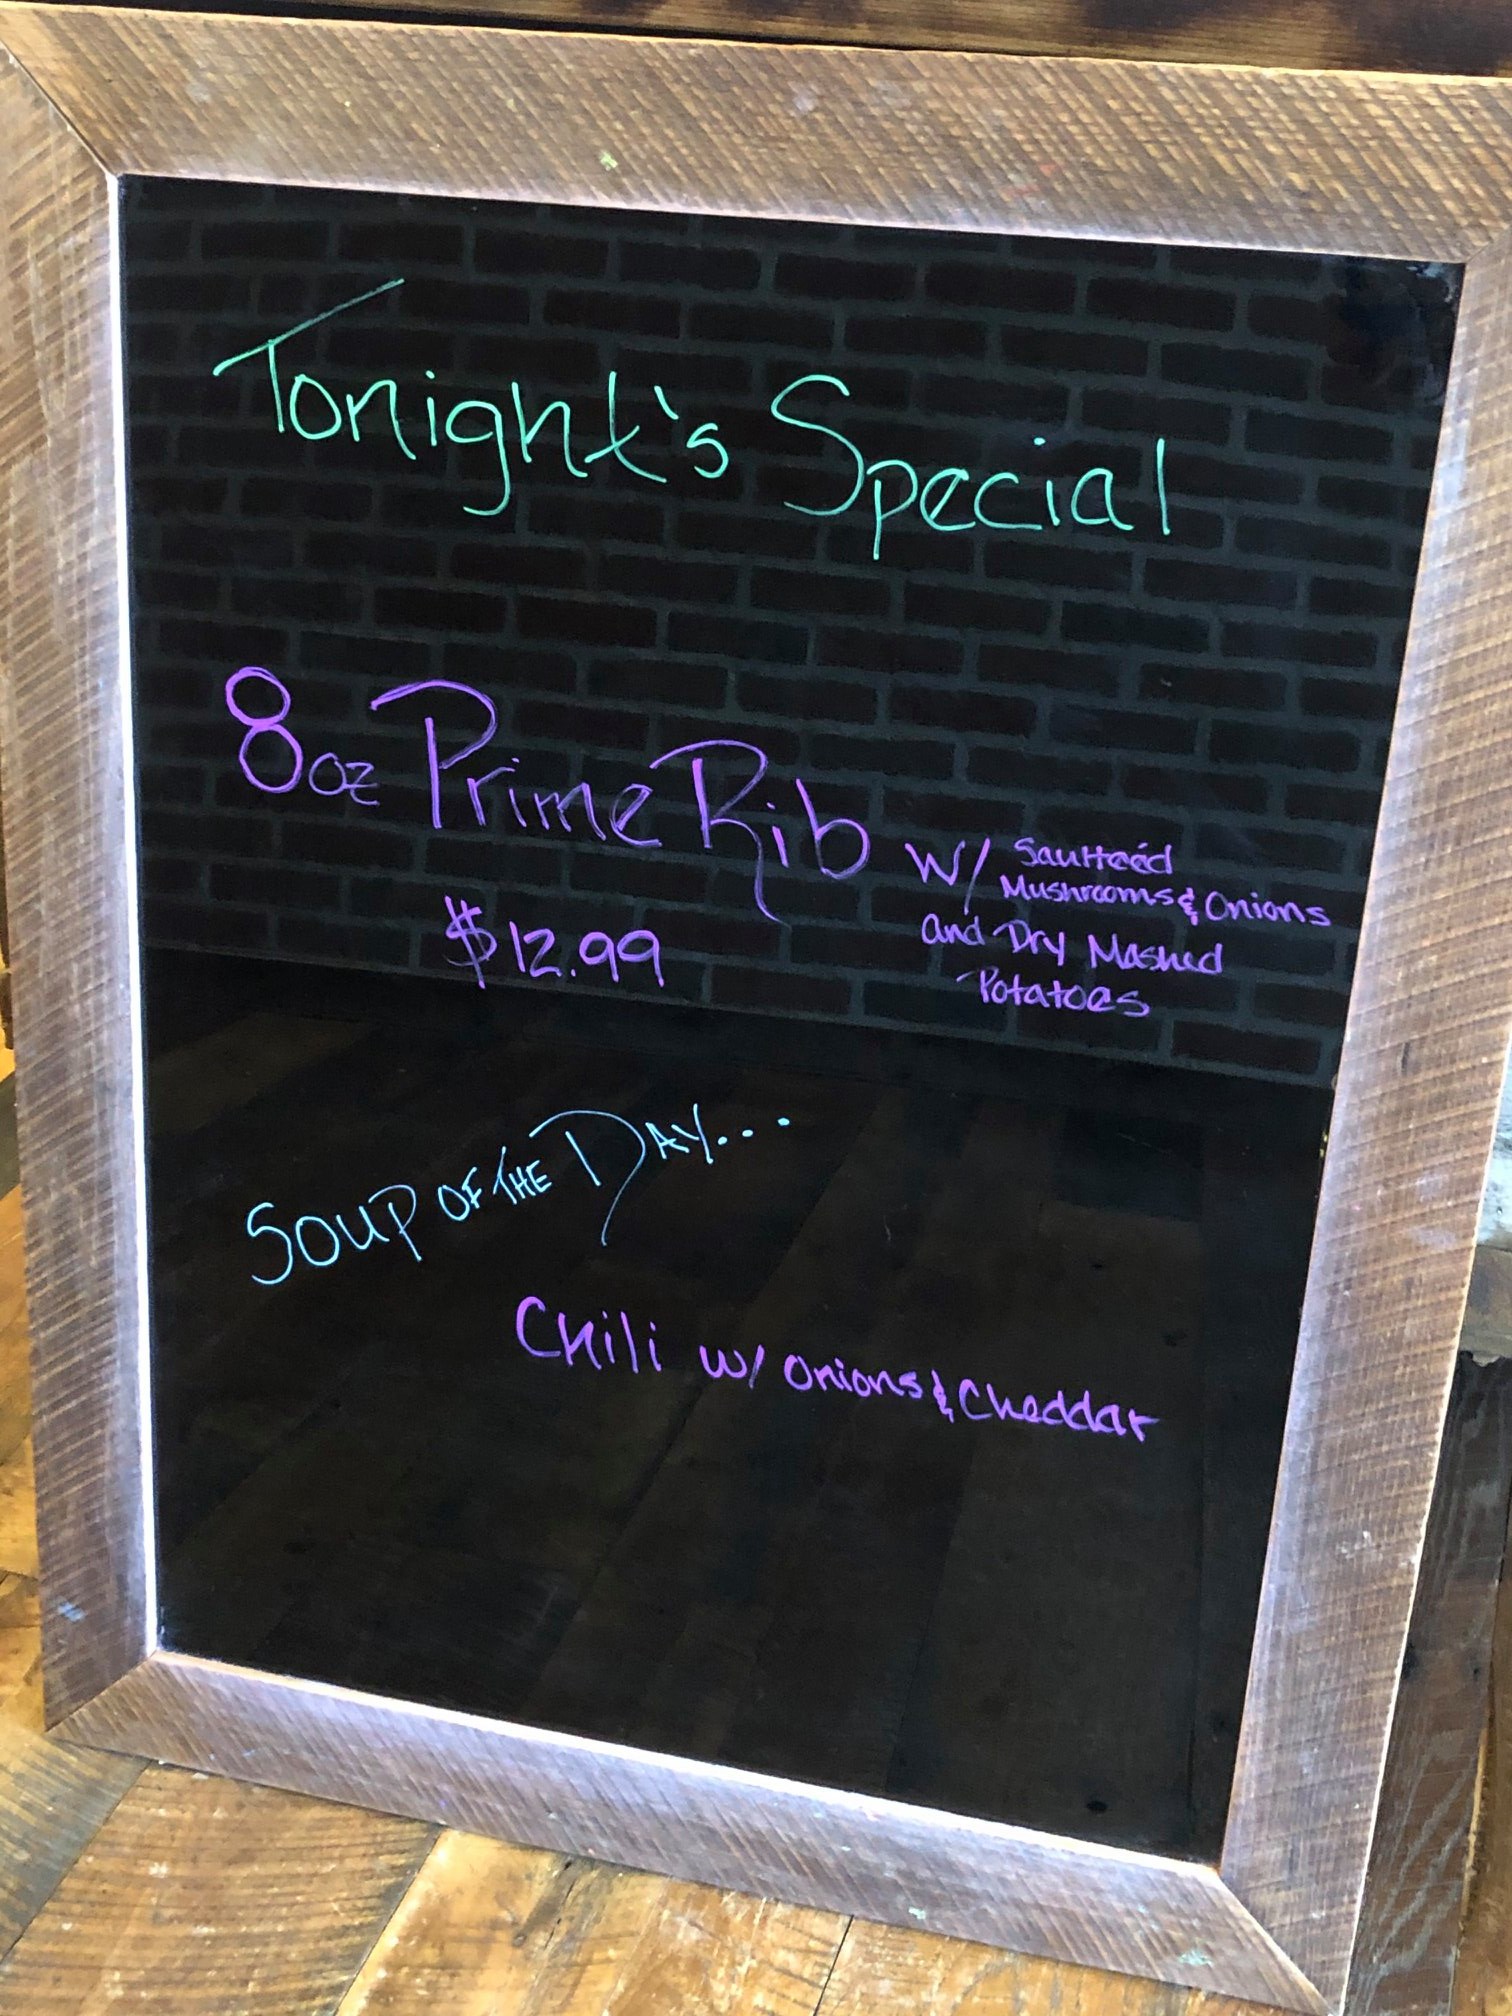 Tonight's Special
8oz Prime Rib w/ Sautteéd
Mushrooms & Onions
and Dry Mashed
Potatoes
$12.99
Soup of the Day...
Chili w/ Onions & Cheddar